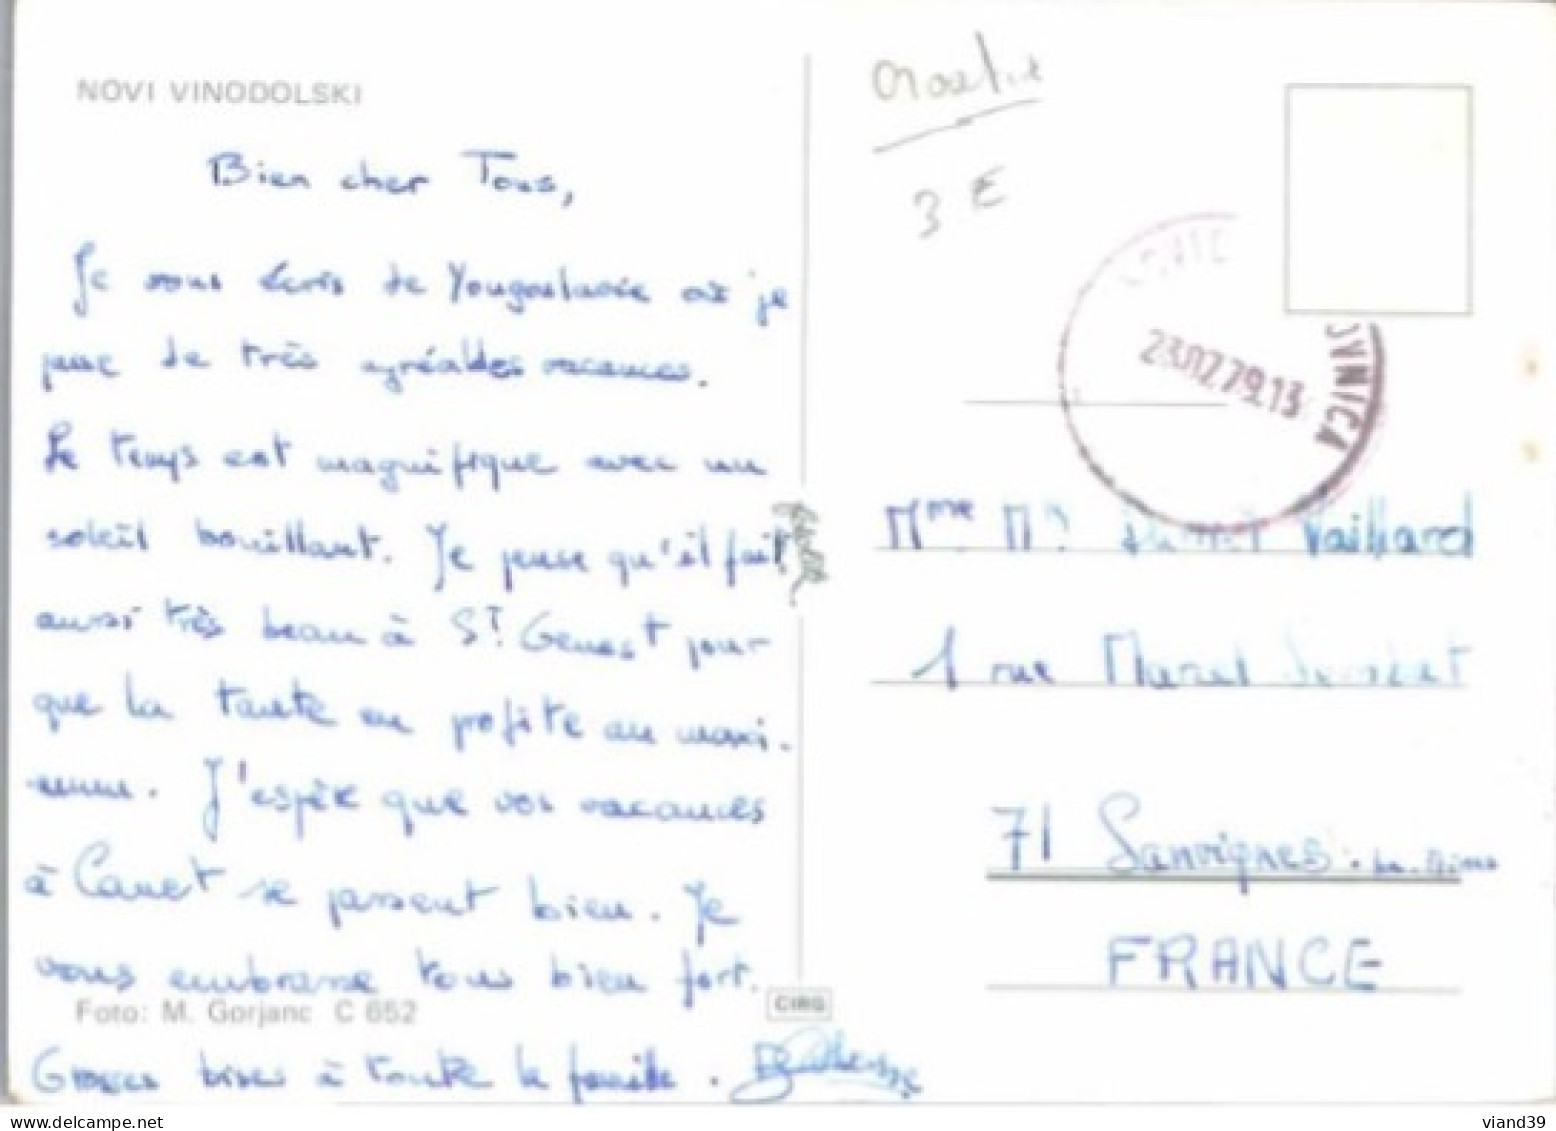 NOVI VINODOLSKI
Bien cher Tous,
Je vous écris de Yougoslavie où je
passe de très agréables vacances.
Le temps est magnifique avec un
soleil bouillant. Je pense qu'il fait
aussi très beau à St. Genest pour
que la tante en profite au maxi-
-mum. J'espère que vos vacances
à Canet se passent bien. Je
vous embrasse tous bien fort.
Foto: M. Gorjanc C 652
CIRG
Grosses bises à toute la famille.
Croatie
3 €
23.07.79.13
Mme Mr Vaillard
1 rue Marcel
71 Sanvignes-les-Mines
FRANCE
viand39